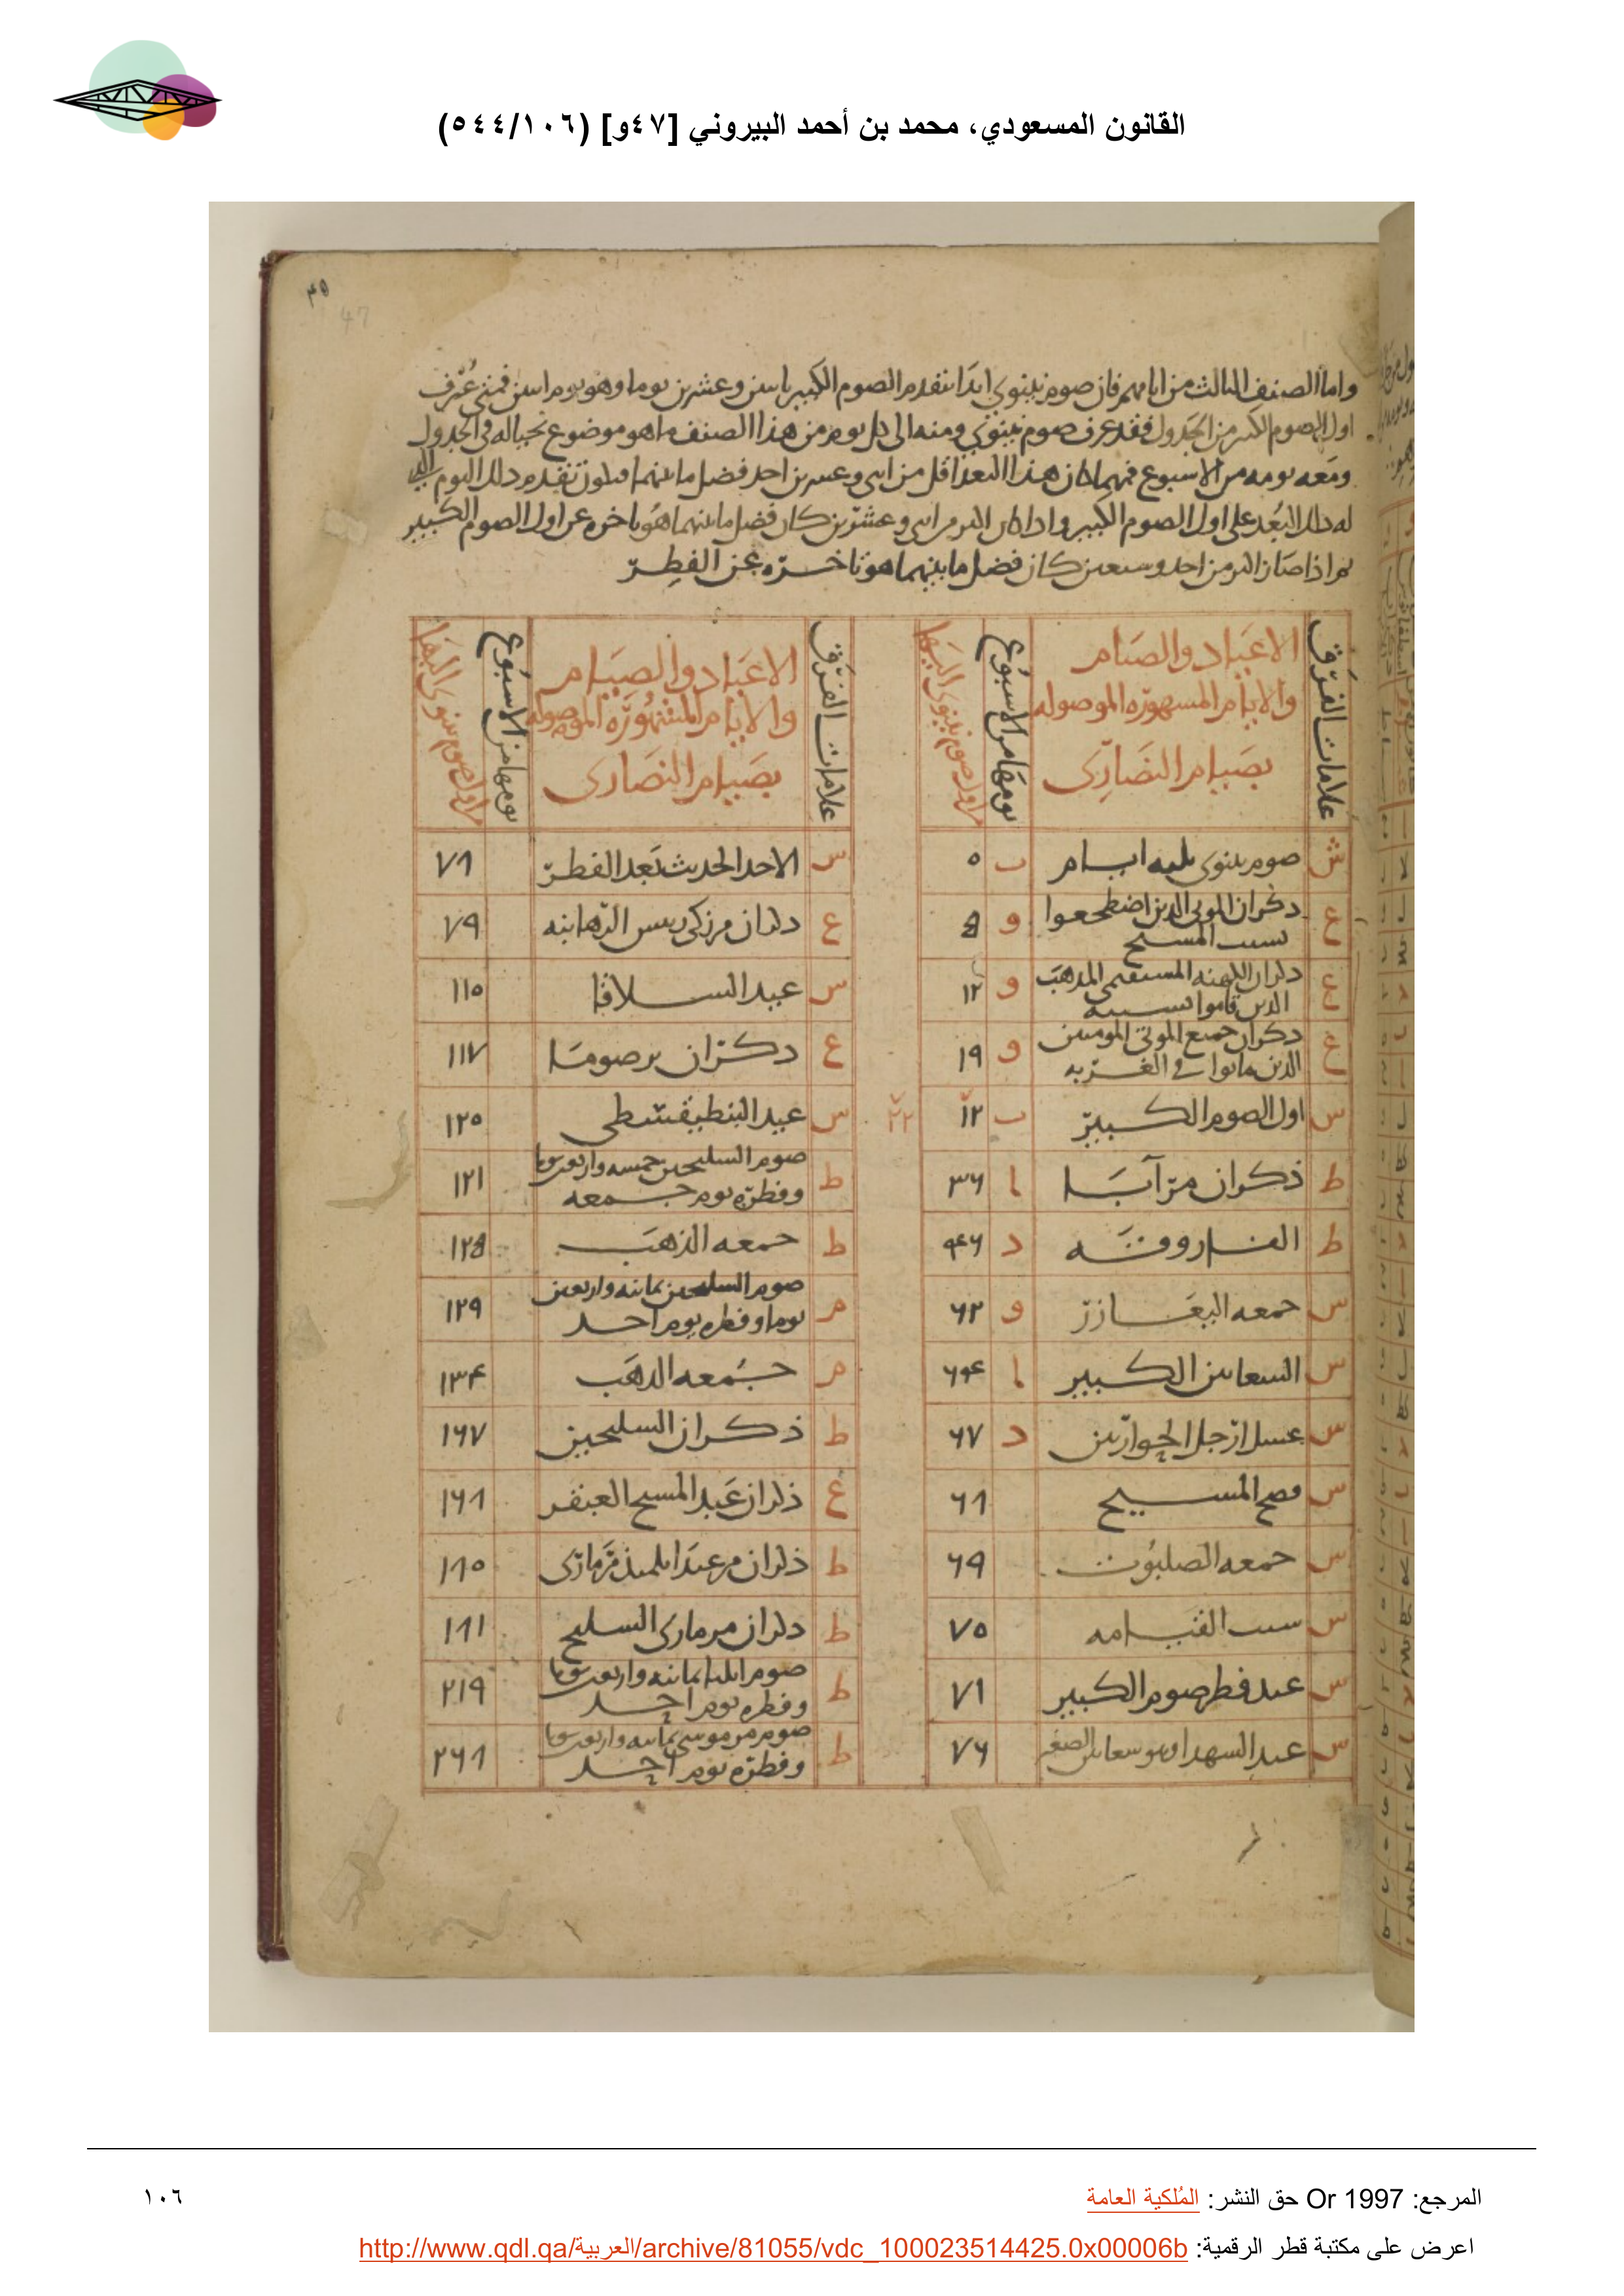 القانون المسعودي، محمد بن أحمد البيروني [٤٧و] (٥٤٤/١٠٦)
٣٥
47
واما الصنف الثالث من ايامهم فان صوم نينوى ابدا يتقدم الصوم الكبير باثنين وعشرين يوما وهو يوم اثنين فمتى عُرف
اول الصوم الكبير من الجدول فقد عرف صوم نينوى ومنه الى كل يوم من هذا الصنف ما هو موضوع بحياله في الجدول
ومعه يومه من الاسبوع فمهما كان هذا البعد اقل من اثنى وعشرين اخذ فضل ما بينهما فيكون تقدم ذلك اليوم الذي
له ذلك البُعد على اول الصوم الكبير واذا كان اكثر من اثنى وعشرين كان فضل ما بينهما هو تاخره عن اول الصوم الكبير
ثم اذا صار اكثر من احد وسبعين كان فضل ما بينهما هو تاخره عن الفطر
علامات الفرق
الاعياد والصيام
والايام المشهورة الموصولة
بصيام النصارى
يومها من الاسبوع
من اول صوم نينوى اليها
س صوم نينوى ثلثه ايام ب ٥
ع ذكران الموتى الذين اضطجعوا بسبب المسيح و
ع ذكران الكهنه المستقيمى المذهب الذين قاموا بسببه و ١٢
ع ذكران جميع الموتى المومنين الذين ماتوا في الغربه و ١٩
س اول الصوم الكبير ب ٢٢
ط ذكران مر آبا ا ٣٦
ط الفاروقه د ٤٦
س جمعه البعازر و ٦٢
س السعانين الكبير ا ٦٤
س غسل ارجل الحواريين د ٦٧
س فصح المسيح ٦٨
س جمعه الصلبوت ٦٩
س سبت القيامه ٧٠
س عيد فطر صوم الكبير ٧١
س عيد الشهدا وهو سعانين الصغير ٧٦
علامات الفرق
الاعياد والصيام
والايام المشهورة الموصولة
بصيام النصارى
يومها من الاسبوع
من اول صوم نينوى اليها
س الاحد الحديث بعد الفطر ٧٨
ع ذكران مر زكى رييس الرهابنه ٧٩
س عيد السلاقا ١١٠
ع ذكران برصوما ١١٧
س عيد البنطيقسطى ١٢٠
ط صوم السليحين خمسه واربعون يوما وفطره يوم جمعه ١٢١
ط جمعه الذهب
م صوم السليحين ثمانيه واربعين يوما وفطره يوم احد ١٢٩
م جمعه الذهب ١٣٤
ط ذكران السليحين ١٦٧
ع ذكران عبد المسيح ١٦٨
ط ذكران مر عبدا تلميذ مر مارى ١٨٠
ط ذكران مر مارى السليح ١٨١
ط صوم ايليا ثمانيه واربعون يوما وفطره يوم احد ٢١٩
ط صوم مر موسى ثمانيه واربعون يوما وفطره يوم احد ٢٦٨
المرجع: Or 1997 حق النشر: المُلكية العامة
١٠٦
اعرض على مكتبة قطر الرقمية: http://www.qdl.qa/العربية/archive/81055/vdc_100023514425.0x00006b